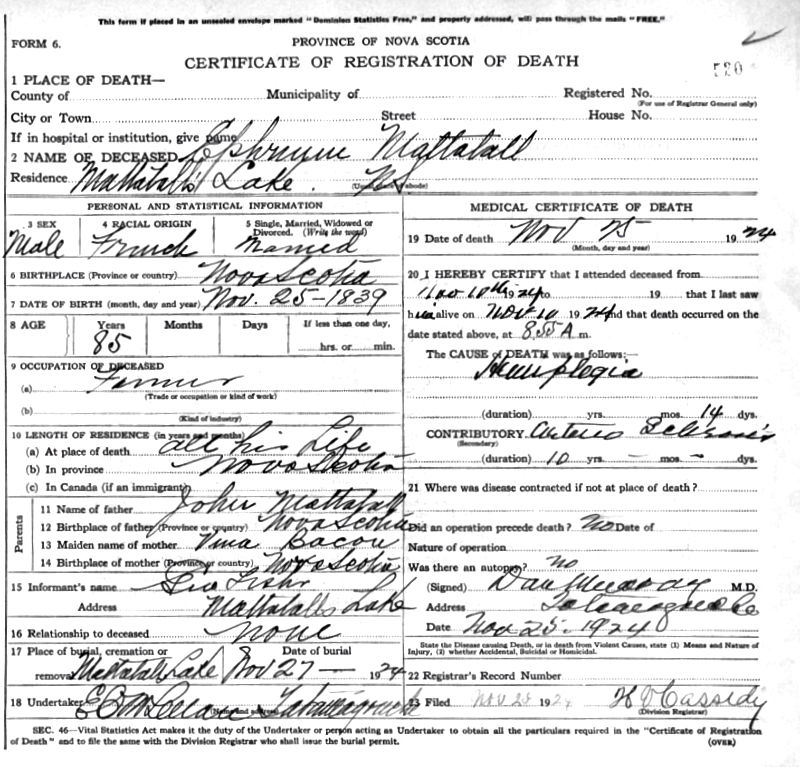 This form if placed in an unsealed envelope marked "Dominion Statistics Free," and properly addressed, will pass through the mails "FREE."
FORM 6.
PROVINCE OF NOVA SCOTIA
CERTIFICATE OF REGISTRATION OF DEATH
520
1 PLACE OF DEATH—
County of Municipality of Registered No.
(For use of Registrar General only)
City or Town Street House No.
If in hospital or institution, give name
2 NAME OF DECEASED Ephraim Mattatall
Residence Mattatall's Lake. NS
(Usual place of abode)
PERSONAL AND STATISTICAL INFORMATION
3 SEX 4 RACIAL ORIGIN 5 Single, Married, Widowed or Divorced. (Write the word)
Male French Married
6 BIRTHPLACE (Province or country) Nova Scotia
7 DATE OF BIRTH (month, day and year) Nov. 25-1839
8 AGE Years Months Days If less than one day,
85 hrs. or min.
9 OCCUPATION OF DECEASED
(a) Farmer
(Trade or occupation or kind of work)
(b)
(Kind of industry)
10 LENGTH OF RESIDENCE (in years and months)
(a) At place of death all his Life
(b) In province Nova Scotia
(c) In Canada (if an immigrant)
Parents
11 Name of father John Mattatall
12 Birthplace of father (Province or country) Nova Scotia
13 Maiden name of mother Bacon
14 Birthplace of mother (Province or country) Nova Scotia
15 Informant's name
Address Mattatalls Lake
16 Relationship to deceased none
17 Place of burial, cremation or removal Date of burial
Mattatall Lake Nov 27 — 1924
18 Undertaker Tatamagouche
(Name and address)
MEDICAL CERTIFICATE OF DEATH
19 Date of death Nov 25 1924
(Month, day and year)
20 I HEREBY CERTIFY that I attended deceased from
Nov 10th 1924 to 19 that I last saw
him alive on Nov 10 1924 and that death occurred on the
date stated above, at 8.55 A m.
The CAUSE of DEATH was as follows:—
Hemiplegia
(duration) yrs. mos. 14 dys.
CONTRIBUTORY Arterio Sclerosis
(Secondary)
(duration) 10 yrs. — mos. — dys.
21 Where was disease contracted if not at place of death?
Did an operation precede death? No Date of
Nature of operation
Was there an autopsy? no
(Signed) Dan Murray M.D.
Address Tatamagouche
Date Nov 25. 1924
State the Disease causing Death, or in death from Violent Causes, state (1) Means and Nature of
Injury, (2) whether Accidental, Suicidal or Homicidal.
22 Registrar's Record Number
23 Filed Nov 1924 Cassidy
(Division Registrar)
SEC. 46—Vital Statistics Act makes it the duty of the Undertaker or person acting as Undertaker to obtain all the particulars required in the "Certificate of Registration
of Death" and to file the same with the Division Registrar who shall issue the burial permit. (OVER)